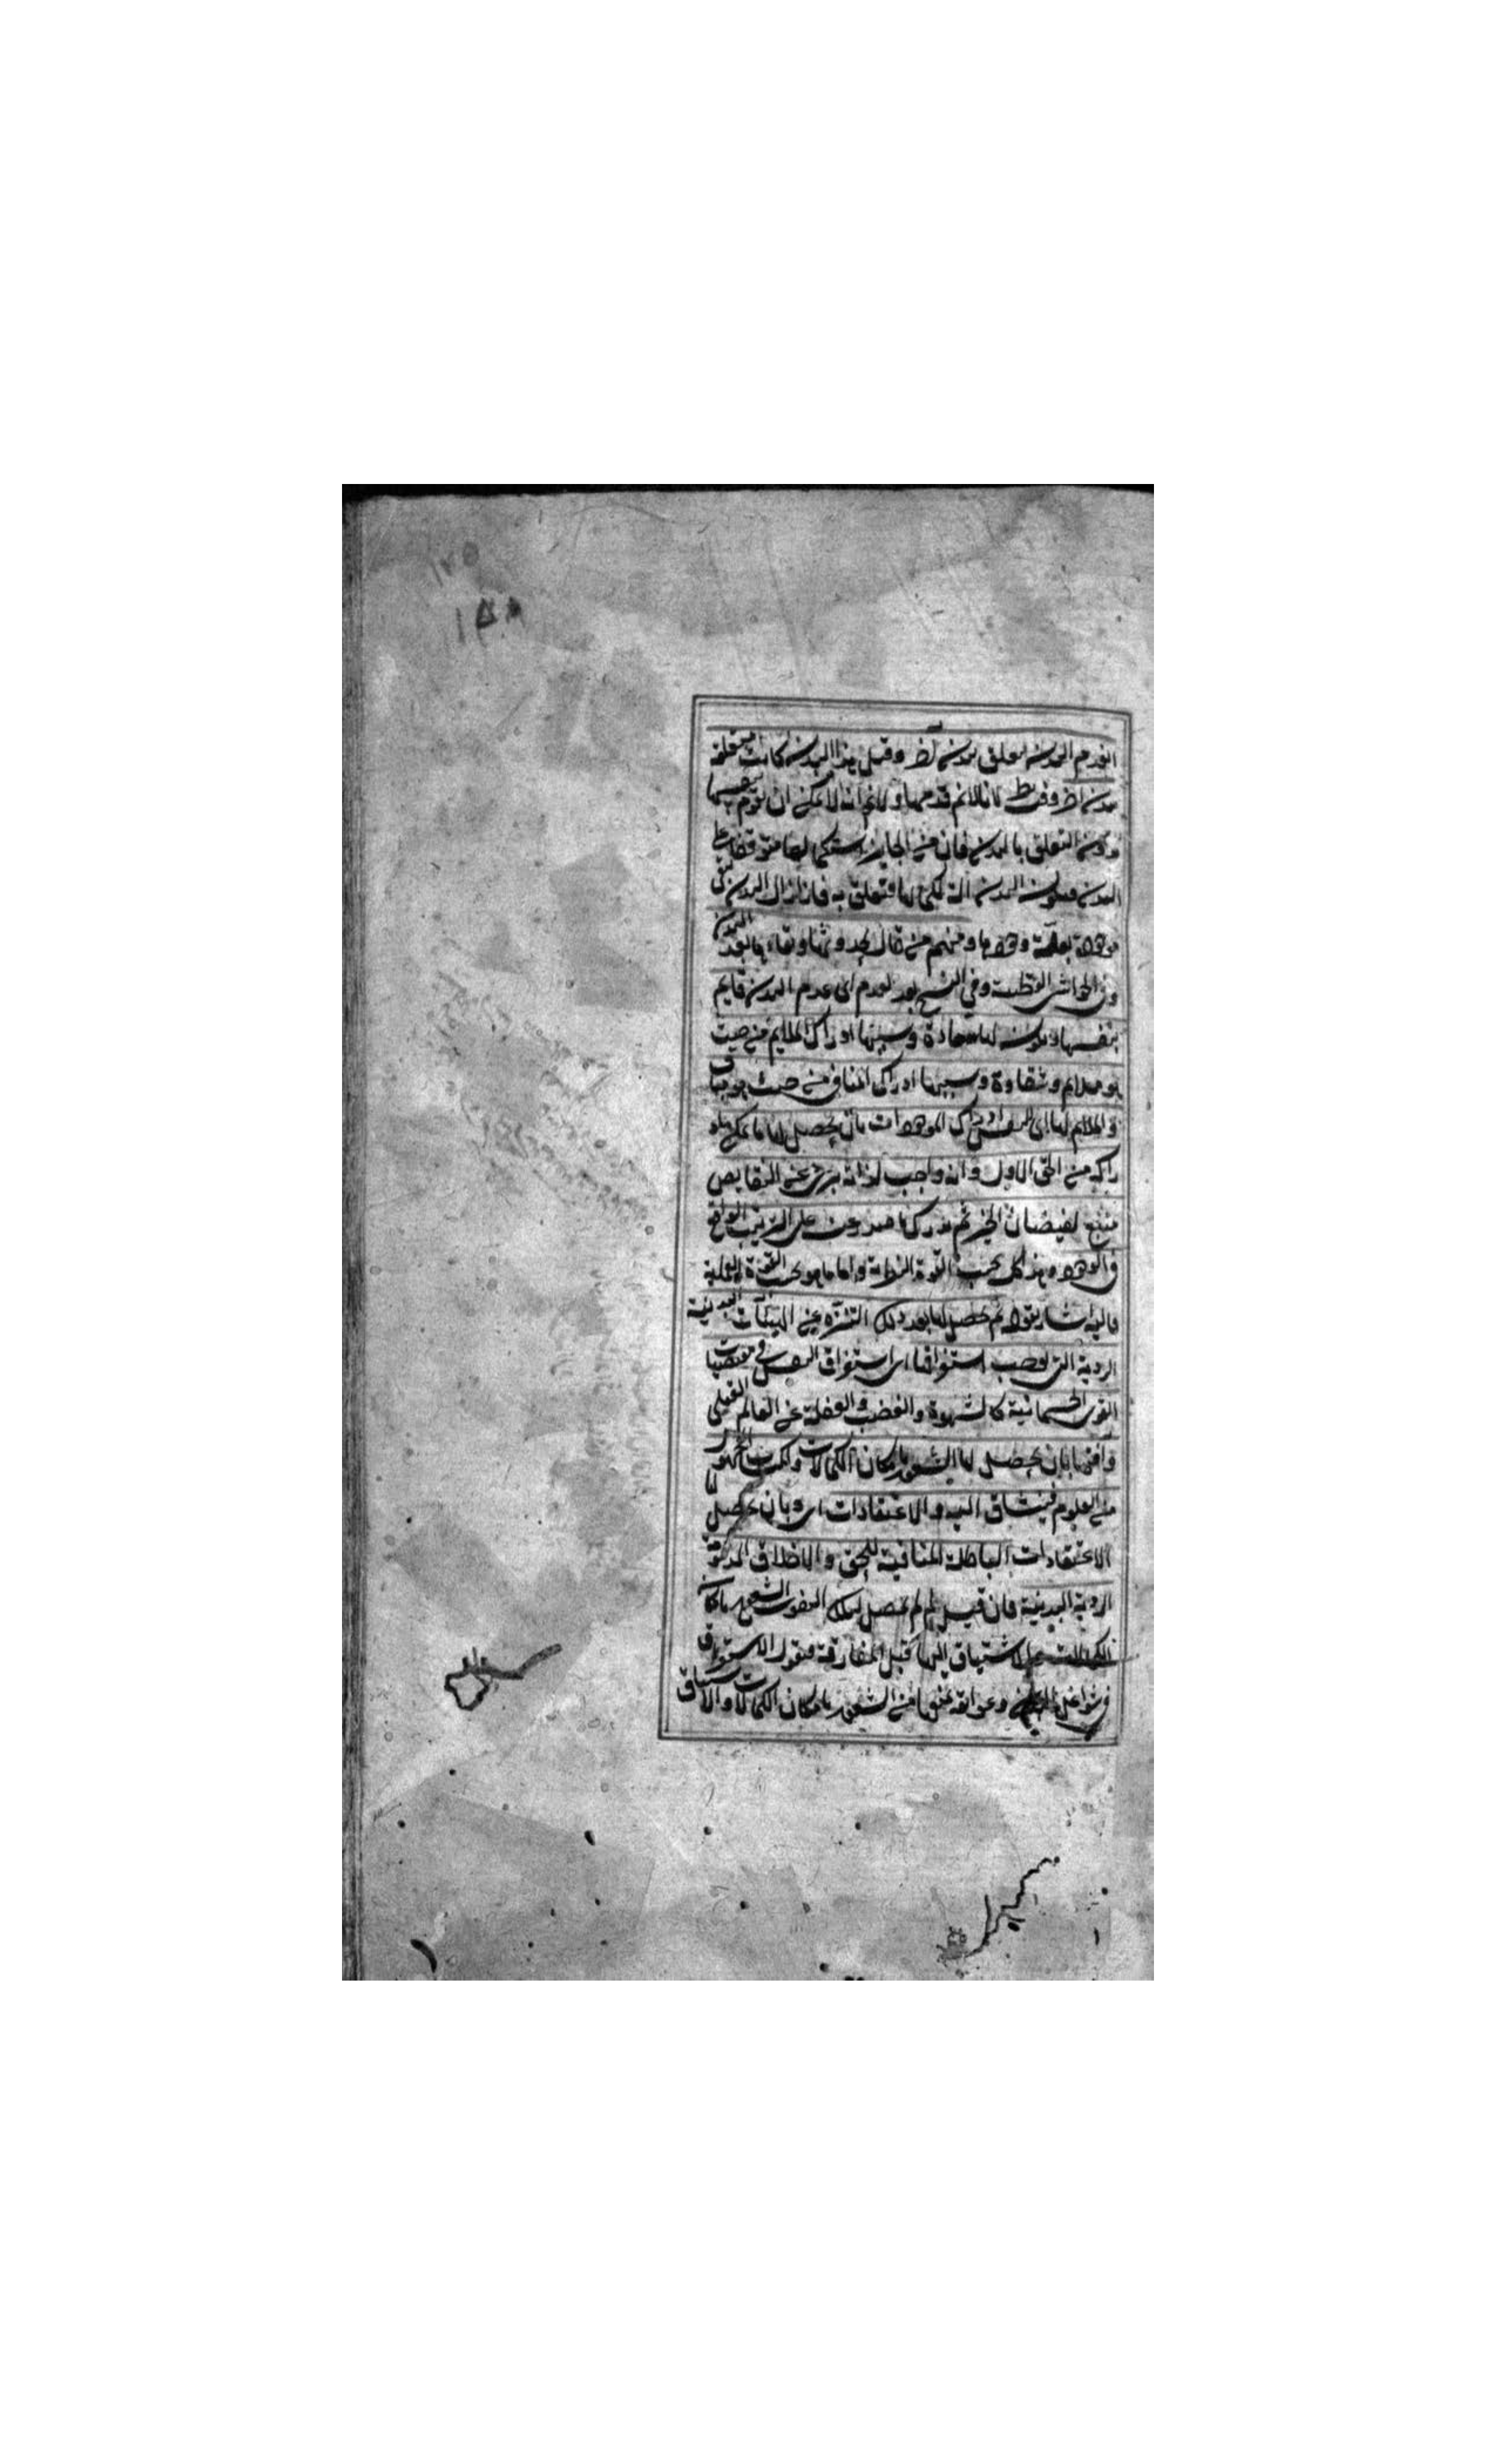 ١٢٥
١٥٨
انعدم البدن تعلق ببدن آخر وقبل هذا البدن كانت متعلقة
ببدن آخر وفيه نظر لانا لانم قدمها ولانم انه لا يمكن ان تقوم بنفسها
بدون التعلق بالبدن فان من الجايز استكمالها متوقفا على
البدن فيكون البدن آلة لها فتعلق به فاذا زال البدن تبقى
موجودة بعلة وجودها ومنهم من قال بحدوثها وبقاءها بعد البدن
وفي الحواشي القطبية وفي النسخ بعد العدم اى عدم البدن قايم
بنفسها ويكون لها سعادة وسببها ادراك الملايم من حيث
هو ملايم وشقاوة وسببها ادراك المنافي من حيث هو مناف
والملايم لها اى للنفس ادراك الموجودات بان يحصل لها ما يمكن
ادراكه من الحق الاول وانه واجب لذاته برى عن النقايص
منبع لفيضان الخير ثم يدرك ما صدر عنه على الترتيب الواقع
في الوجود وهذا كله بحسب القوة النظرية واما ما هو بحسب القوة العملية
فاليه اشار بقوله ثم حصل لها بعد ذلك التنزه عن الهيئات البدنية
الردية التى توجب استغراقها اى استغراق النفس في مقتضيات
القوى الجسمانية كالشهوة والغضب والغفلة عن العالم العقلى
بان يحصل لها الشعور بامكان الكمالات
من العلوم فيشتاق اليه والاعتقادات اى وبان يحصل لها
الاعتقادات الباطلة المنافية للحق والاخلاق
الردية البدنية فان قيل لم لم يحصل لتلك النفوس الشعور بامكان
الكمالات والاشتياق اليها قبل المفارقة فنقول الاستغراق
في شواغل البدن وعوايقه يمنعها من الشعور بامكان الكمالات والاشتياق